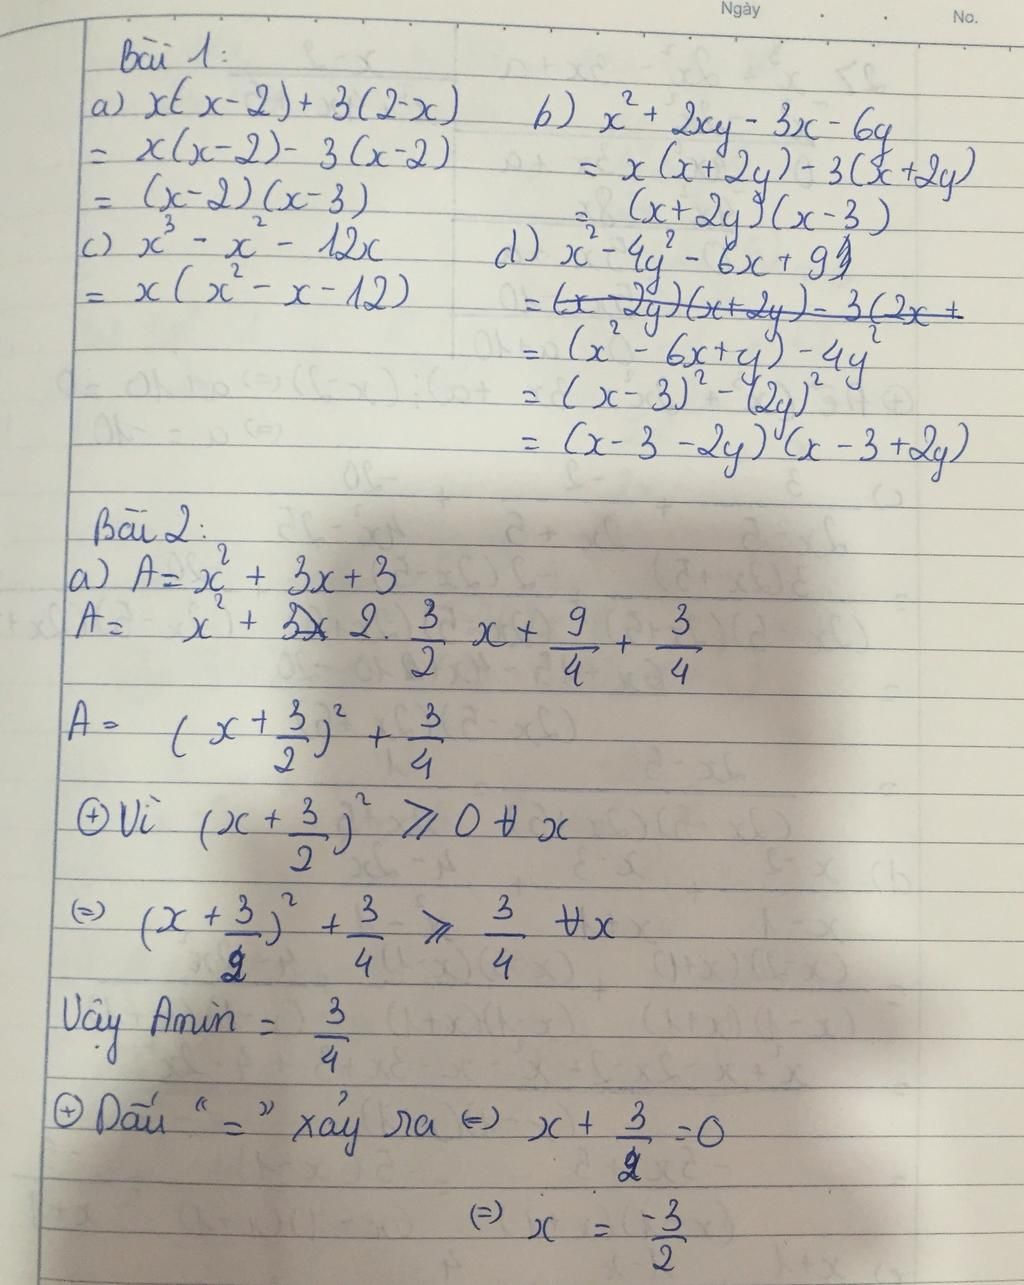 Ngày No.
Bài 1:
a) x(x-2)+3(2-x)
= x(x-2)-3(x-2)
= (x-2)(x-3)
b) x²+2xy-3x-6y
= x(x+2y)-3(x+2y)
= (x+2y)(x-3)
c) x³-x²-12x
= x(x²-x-12)
d) x²-4y²-6x+9
= (x-2y)(x+2y)-3(2x+
= (x²-6x+y)-4y²
= (x-3)²-(2y)²
= (x-3-2y)(x-3+2y)
Bài 2:
a) A= x²+3x+3
A= x²+ 2. 3/2 x + 9/4 + 3/4
A= (x+3/2)² + 3/4
⊕ Vì (x+3/2)² ⩾ 0 ∀ x
(=) (x+3/2)² + 3/4 ⩾ 3/4 ∀x
Vậy Amin = 3/4
⊕ Dấu "=" xảy ra (=) x + 3/2 =0
(=) x = -3/2